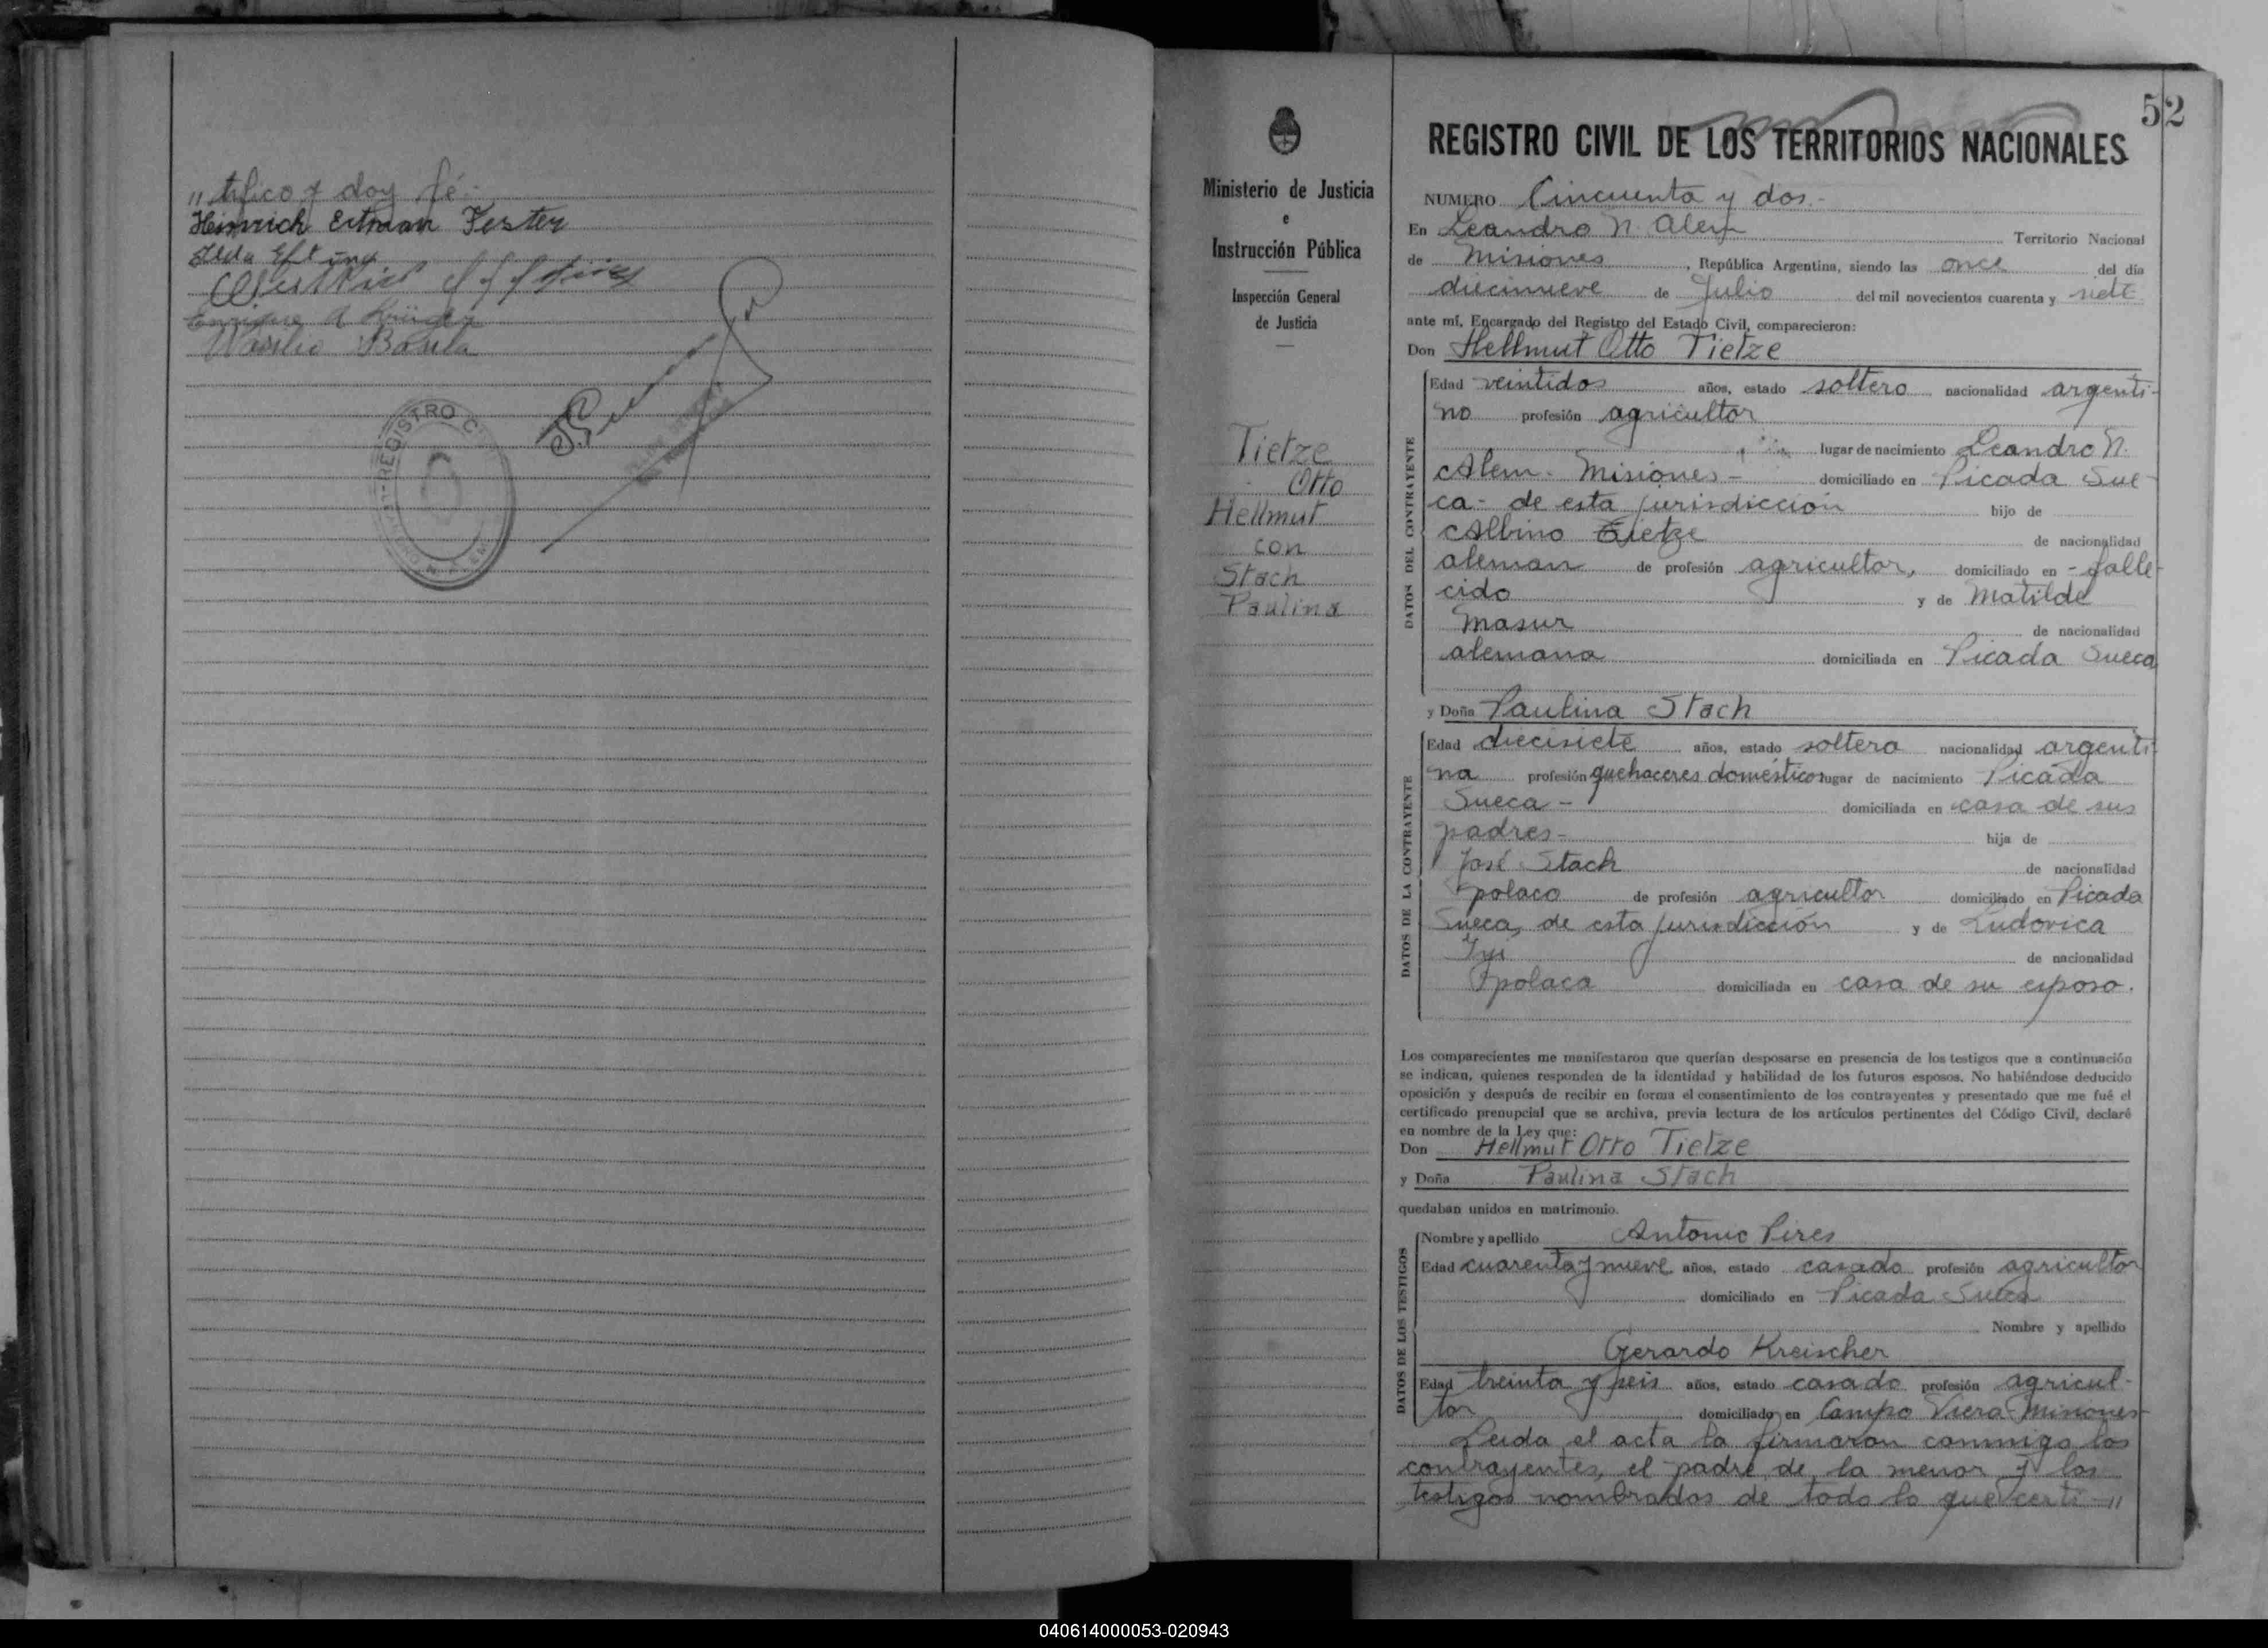 " tifico y doy fé.-
Heinrich Ertman Fester
Ilda
Enrique A Krüger
Wasilio Baula
REGISTRO C
Ministerio de Justicia
e
Instrucción Pública
Inspección General
de Justicia
Tietze
Otto
Hellmut
con
Stach
Paulina
52
REGISTRO CIVIL DE LOS TERRITORIOS NACIONALES
NUMERO Cincuenta y dos.-
En Leandro N. Alem Territorio Nacional
de Misiones, República Argentina, siendo las once del día
diecinueve de Julio del mil novecientos cuarenta y siete
ante mí, Encargado del Registro del Estado Civil, comparecieron:
Don Hellmut Otto Tietze
DATOS DEL CONTRAYENTE
Edad veintidos años, estado soltero nacionalidad argenti-
no profesión agricultor
lugar de nacimiento Leandro N.
Alem. Misiones- domiciliado en Picada Sue-
ca- de esta jurisdicción hijo de
Albino Tietze de nacionalidad
aleman de profesión agricultor, domiciliado en -falle-
cido y de Matilde
Masur de nacionalidad
alemana domiciliada en Picada Sueca
y Doña Paulina Stach
DATOS DE LA CONTRAYENTE
Edad diecisiete años, estado soltera nacionalidad argenti-
na profesión quehaceres domésticos lugar de nacimiento Picada
Sueca- domiciliada en casa de sus
padres- hija de
José Stach de nacionalidad
polaco de profesión agricultor domiciliado en Picada
Sueca, de esta jurisdicción y de Ludovica
de nacionalidad
polaca domiciliada en casa de su esposo.
Los comparecientes me manifestaron que querían desposarse en presencia de los testigos que a continuación
se indican, quienes responden de la identidad y habilidad de los futuros esposos. No habiéndose deducido
oposición y después de recibir en forma el consentimiento de los contrayentes y presentado que me fué el
certificado prenupcial que se archiva, previa lectura de los artículos pertinentes del Código Civil, declaré
en nombre de la Ley que:
Don Hellmut Otto Tietze
y Doña Paulina Stach
quedaban unidos en matrimonio.
DATOS DE LOS TESTIGOS
Nombre y apellido Antonio Pires
Edad cuarenta y nueve años, estado casado profesión agricultor
domiciliado en Picada Sueca
Nombre y apellido
Gerardo Kreischer
Edad treinta y seis años, estado casado profesión agricul-
tor domiciliado en Campo Viera Misiones
Leida el acta la firmaron conmigo los
contrayentes, el padre de la menor y los
testigos nombrados de todo lo que certi-"
040614000053-020943